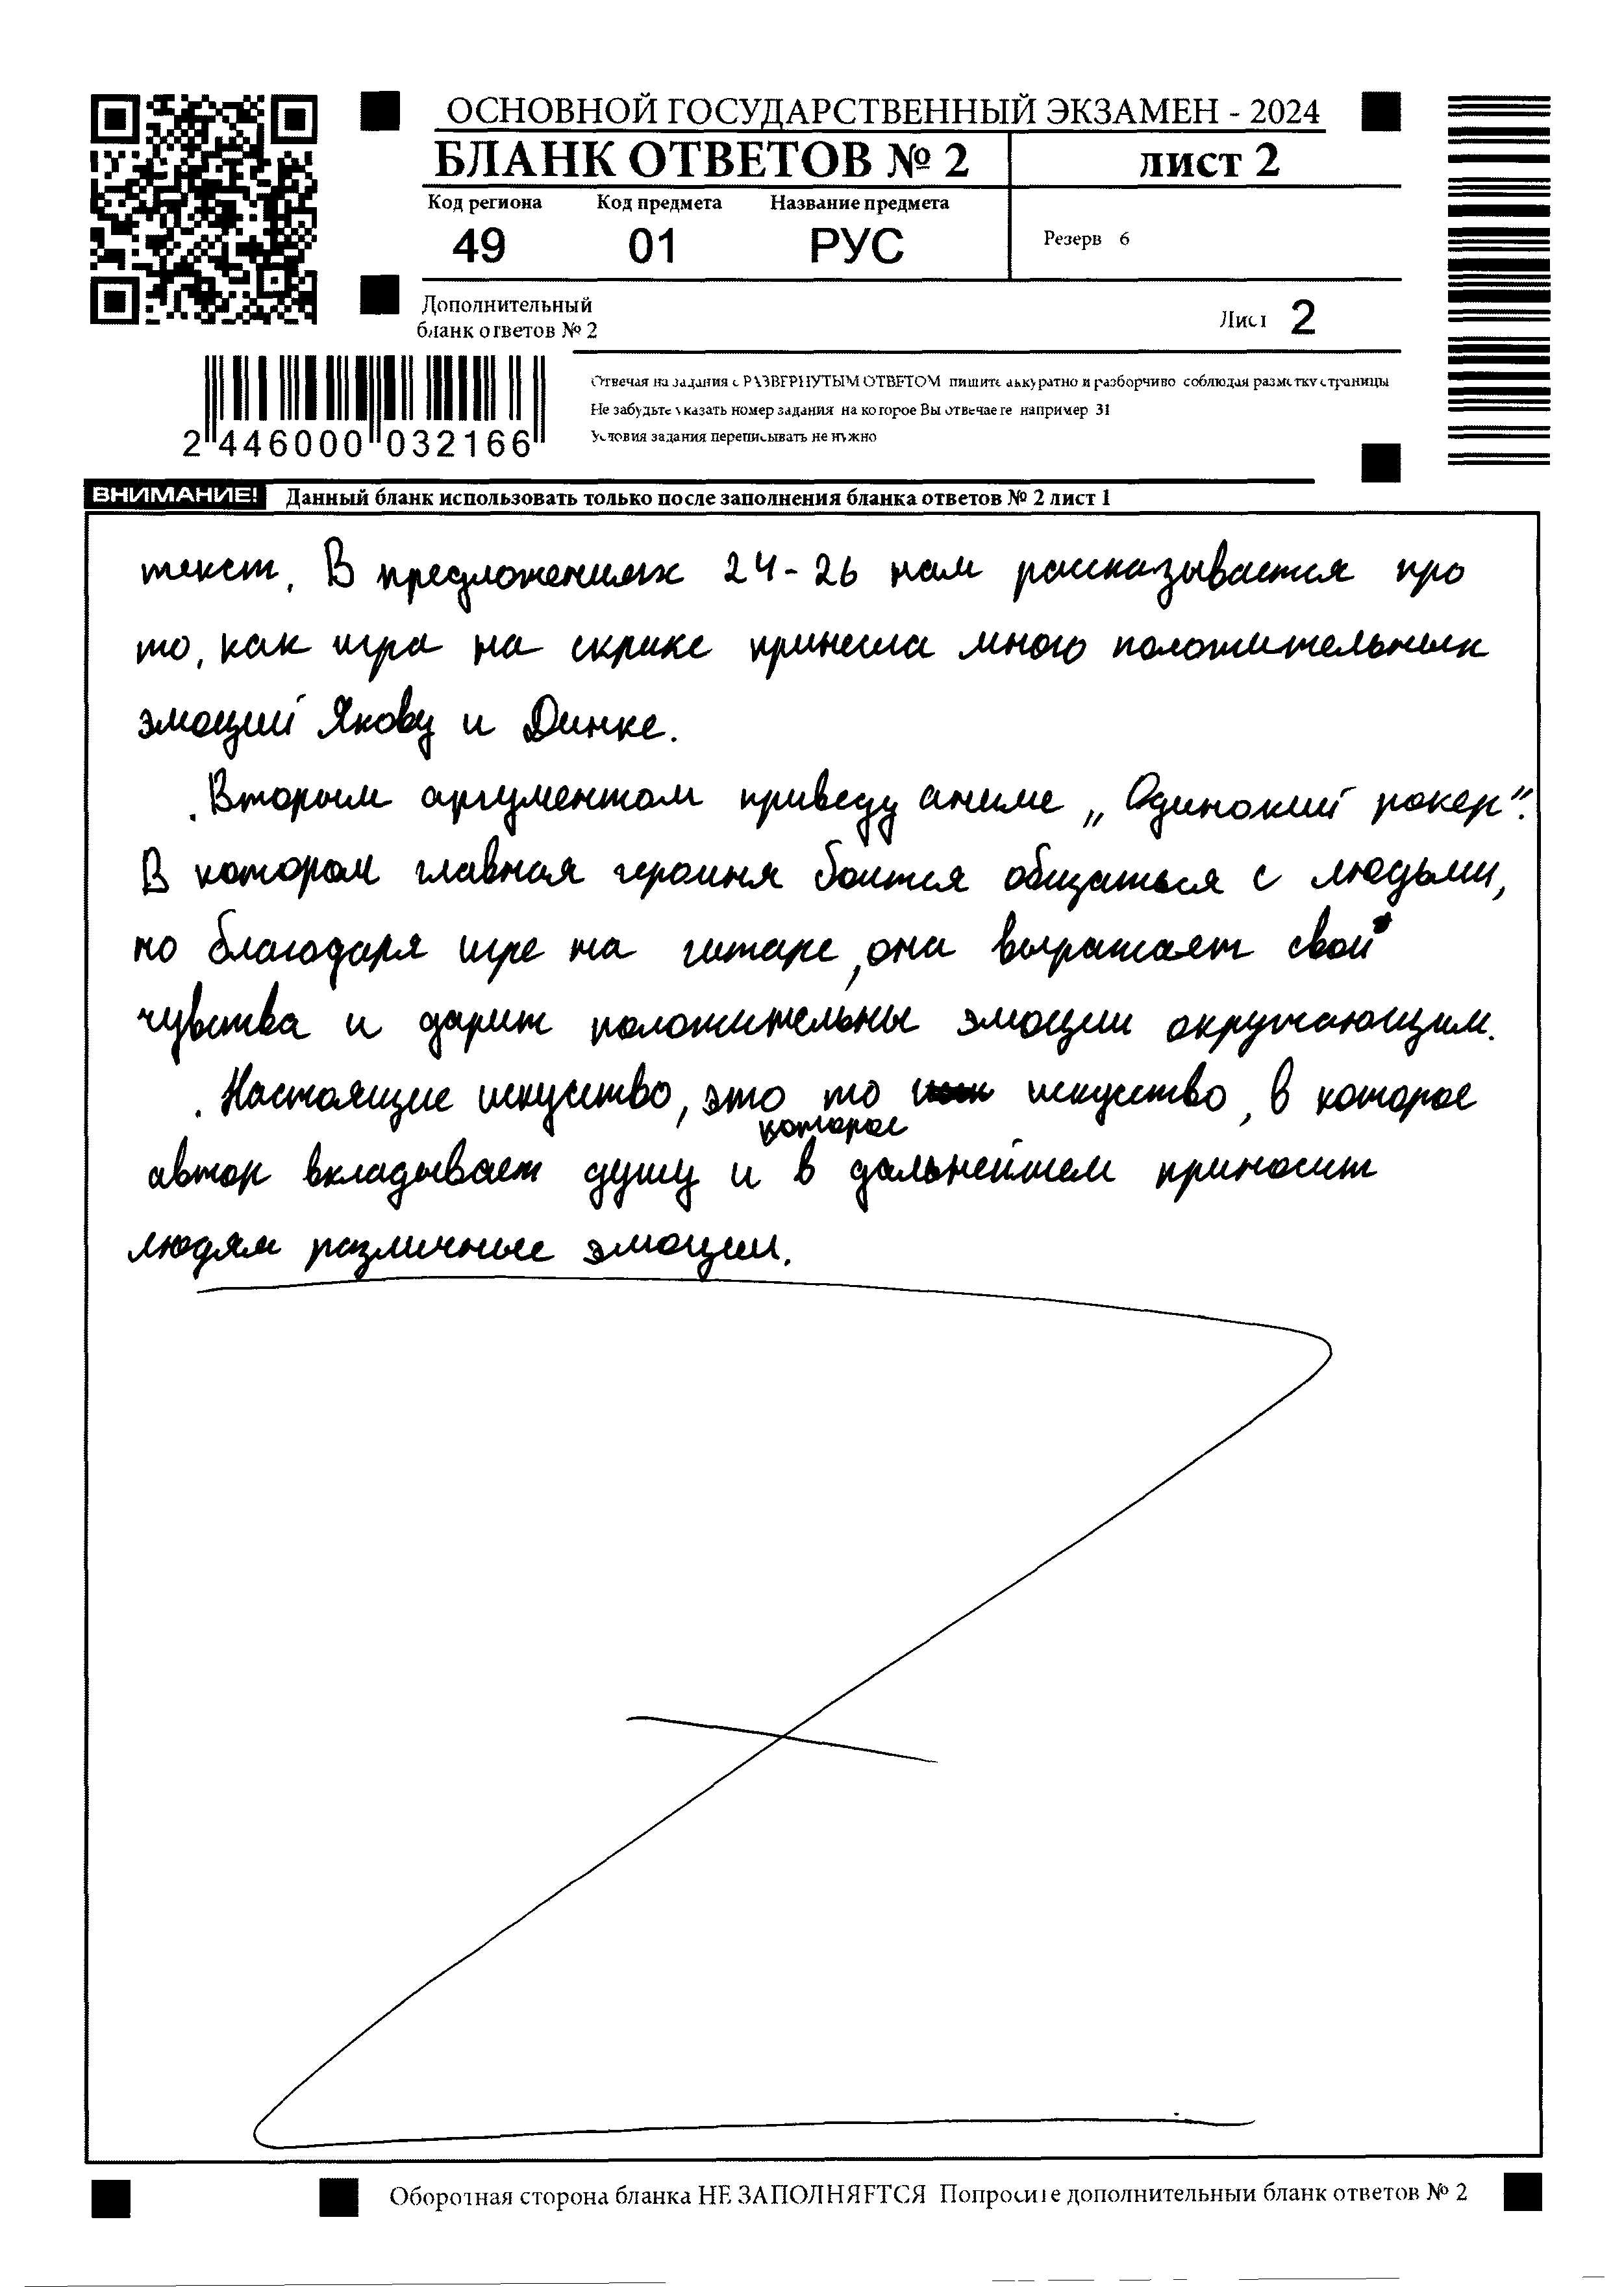 ОСНОВНОЙ ГОСУДАРСТВЕННЫЙ ЭКЗАМЕН - 2024
БЛАНК ОТВЕТОВ № 2
лист 2
Код региона Код предмета Название предмета
49 01 РУС
Резерв 6
Дополнительный
бланк ответов № 2
Лист 2
2 446000 032166
Отвечая на задания с РАЗВЕРНУТЫМ ОТВЕТОМ пишите аккуратно и разборчиво соблюдая разметку страницы
Не забудьте указать номер задания на которое Вы отвечаете например 31
Условия задания переписывать не нужно
ВНИМАНИЕ! Данный бланк использовать только после заполнения бланка ответов № 2 лист 1
текст. В предложениях 24-26 нам рассказывается про
то, как игра на скрике принесла много положительных
эмоций Якову и Динке.
Вторым аргументом приведу аниме „Одинокий рокер".
В котором главная героиня боится общаться с людьми,
но благодаря игре на гитаре, она выражает свои
чувства и дарит положительны эмоции окружающим.
Настоящие искусство, это то искусство, в которое
автор вкладывает душу и которое в дальнейшем приносит
людям различные эмоции.
Оборотная сторона бланка НЕ ЗАПОЛНЯЕТСЯ Попросите дополнительный бланк ответов № 2